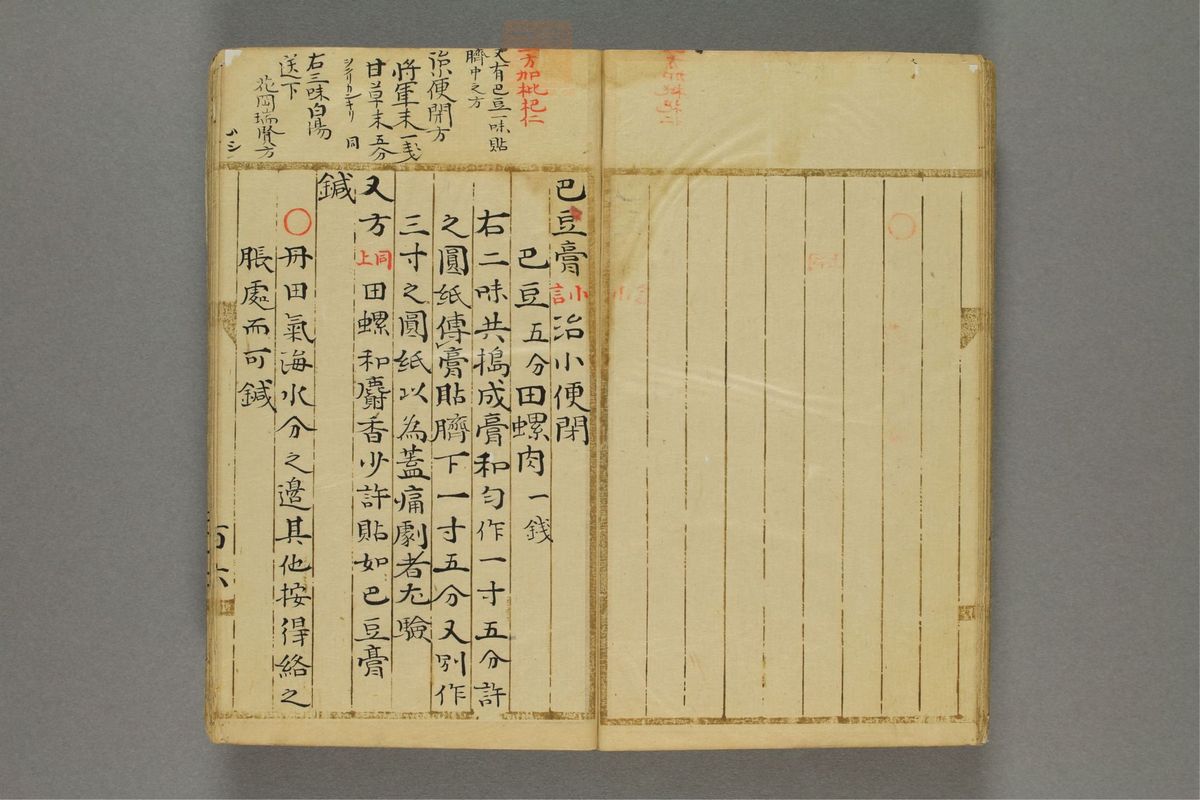 一方加枇杷仁
又有巴豆一味貼
臍中之方
治小便閉方
将軍末一戔
甘草末五分
同
右三味白湯
送下
花岡瑞賢方
巴豆膏 小訁 治小便閉
巴豆五分田螺肉一錢
右二味共搗成膏和匀作一寸五分許
之圓紙傅膏貼臍下一寸五分又別作
三寸之圓紙以為蓋痛劇者尤驗
又方 同上 田螺和麝香少許貼如巴豆膏
鍼
〇 丹田氣海水分之邉其他按得絡之
脹處而可鍼